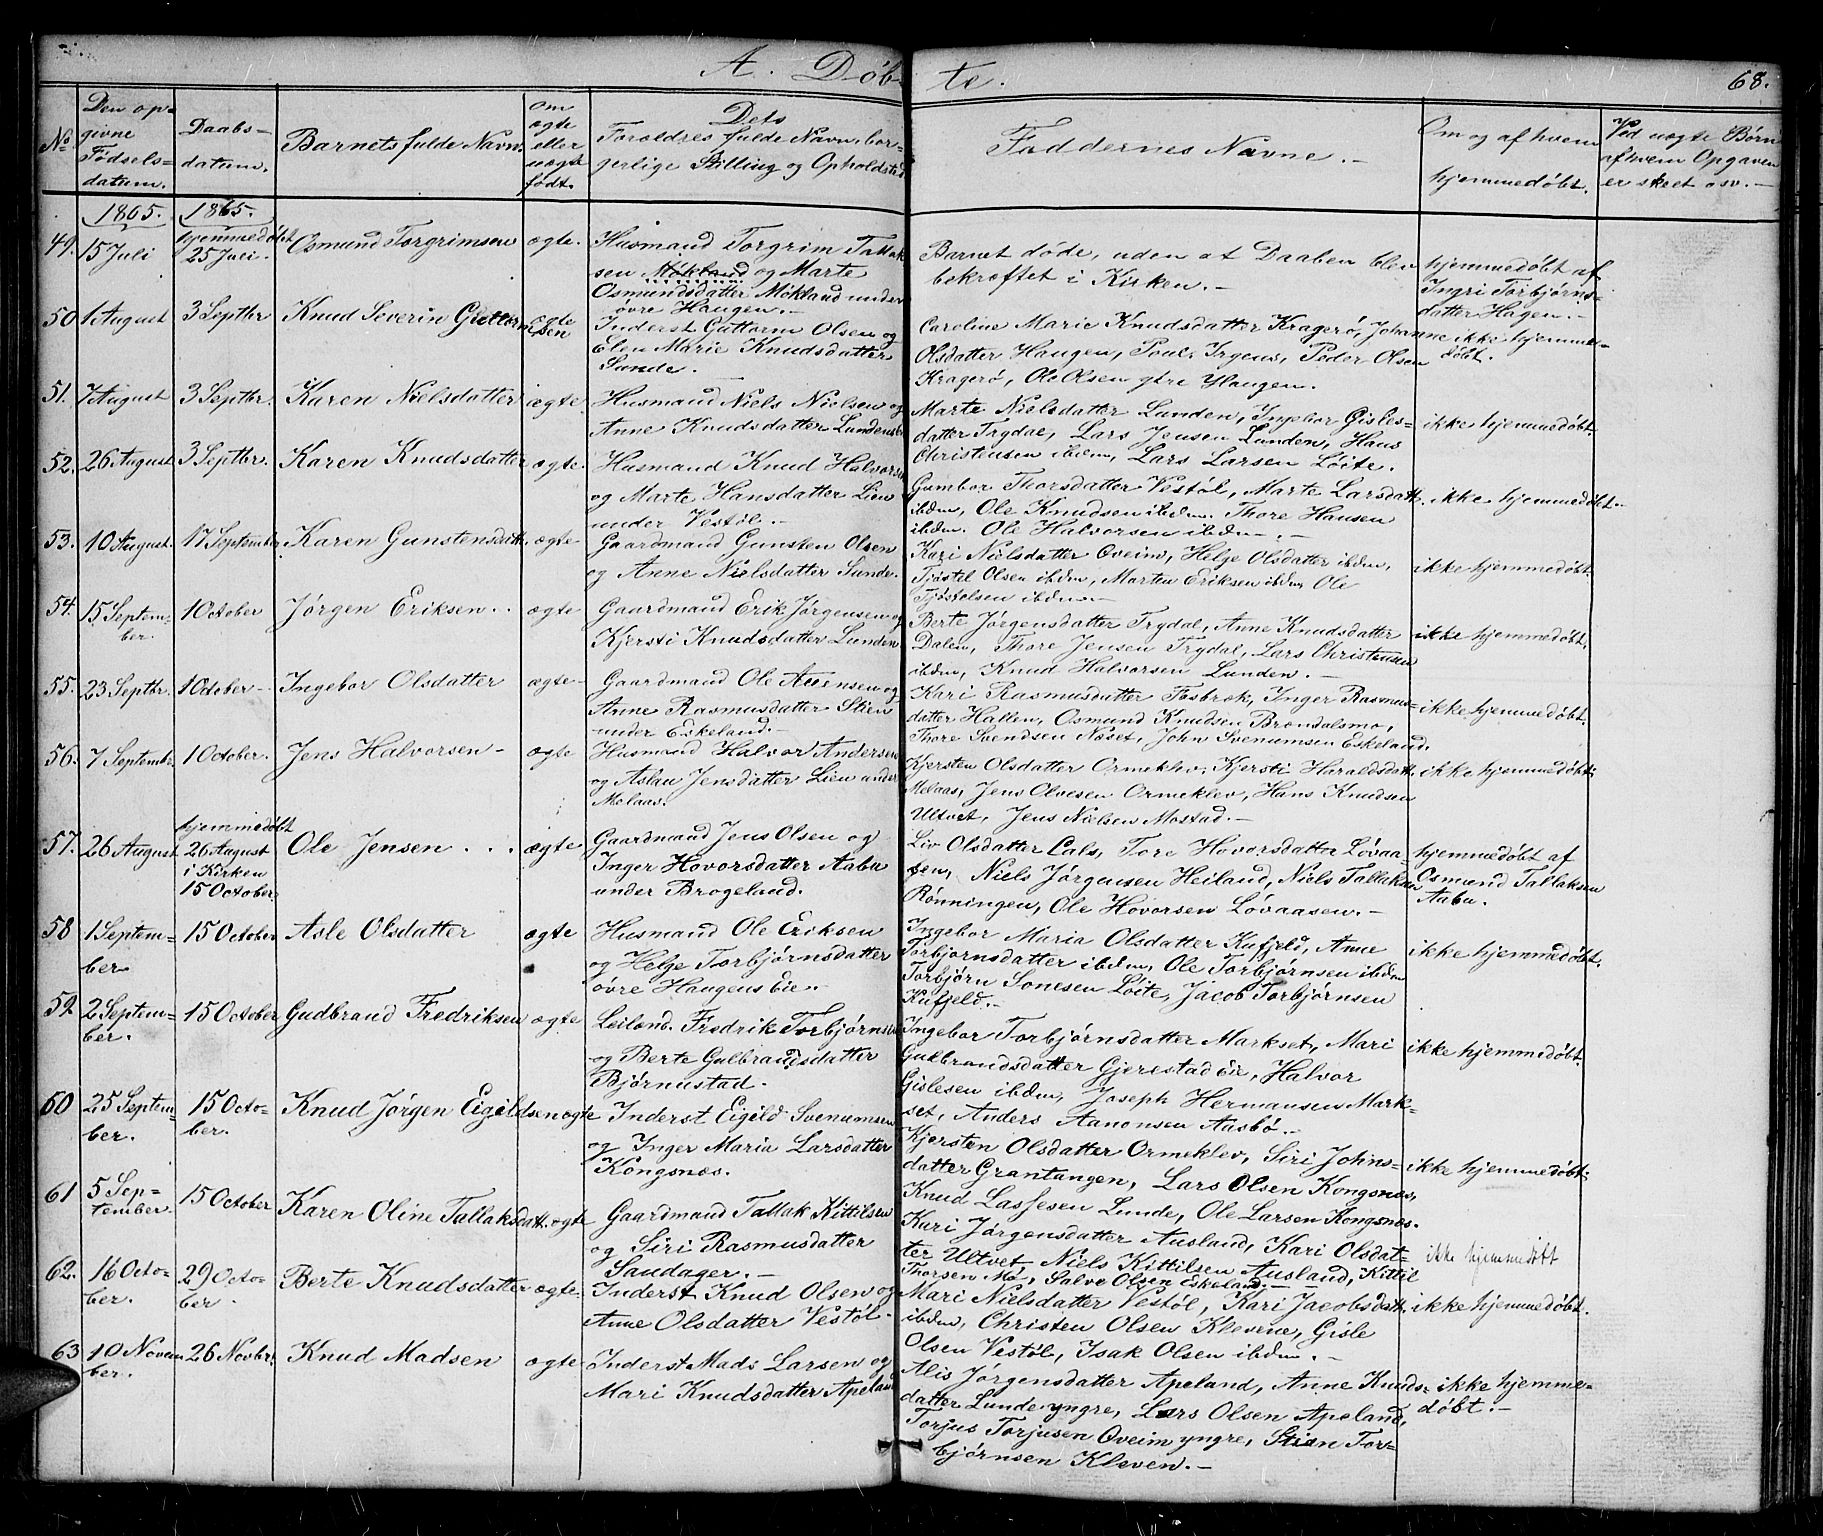 A. Døb-te.
68.
No
Den op-
givne
Fødsels-
datum.
Daabs-
datum.
Barnets fulde Navn.
om
ægte
eller
uægte
født.
Dets
Foreldres fulde Navn, bor-
gerlige Stilling og Opholdsted
Faddernes Navne.-
Om og af hvem
hjemmedøbt.
Ved uægte Børn
af hvem Opgaven
er skeet osv.-
1865. 1865.
49. 15 Juli hjemmedøbt
25 Juli. Osmund Torgrimsen ægte. Husmand Torgrim Tallak
sen Mokland og Marte
Osmundsdatter Mokland under
øvre Haugen.-
Barnet døde, uden at Daaben blev
bekræftet i Kirken.-
hjemmedøbt af
Ingri Torbjørns-
datter Hagen.-
50 1 August 3 Septbr Knud Severin Guttormsen ægte Inderst Guttorm Olsen og
Elen Marie Knudsdatter
Sunde.
Caroline Marie Knudsdatter Kragerø, Johanne
Olsdatter Haugen, Poul Irgens, Peder Olsen
Kragerø, Ole Olsen ytre Haugen.
ikke hjemme-
døbt.
51. 7 August 3 Septbr. Karen Nielsdatter ægte. Husmand Niels Nielsen og
Anne Knudsdatter Lunden
Marte Nielsdatter Lunden, Ingebor Gisles-
datter Trydal, Lars Jensen Lunden, Hans
Christensen ibdm, Lars Larsen Løite.
ikke hjemmedøbt.
52. 26 August 3 Septbr. Karen Knudsdatter ægte. Husmand Knud Halvorsen
og Marte Hansdatter Lien
under Vestøl.-
Gumbor Thorsdatter Vestøl, Marte Larsdatt.
ibdm, Ole Knudsen ibdm. Thore Hansen
ibdm. Ole Halvorsen ibdm.-
ikke hjemmedøbt.-
53. 10 August. 17 September Karen Gunstensdatt. ægte Gaardmand Gunsten Olsen
og Anne Nielsdatter Sunde.
Kari Nielsdatter Oveim, Helje Olsdatter ibdm,
Tjøstel Olsen ibdm, Morten Eriksen ibdm, Ole
Tjøstolsen ibdm.-
ikke hjemmedøbt.
54. 15 Septem-
ber. 1 October Jørgen Eriksen.. ægte Gaardmand Erik Jørgensen og
Kjersti Knudsdatter Lunden
Berte Jørgensdatter Trydal, Anne Knudsdatter
Dalen, Thore Jensen Trydal, Lars Christensen
ibdm, Knud Halvorsen Lunden.-
ikke hjemmedøbt.
55. 23 Septbr. 1 October- Ingebor Olsdatter ægte- Gaardmand Ole Aanensen og
Anne Rasmusdatter Stien
under Eskeland.-
Kari Rasmusdatter Fosbræk, Inger Rasmus-
datter Hallen, Osmund Knudsen Brøndalsmo,
Thore Svendsen Næset, John Svenumsen Eskeland.
ikke hjemmedøbt.
56. 7 Septembr. 1 October. Jens Halvorsen- ægte Husmand Halvor Andersen
og Aslau Jensdatter Lien under
Melaas.
Kjersten Olsdatter Ormeklev, Kjersti Haraldsdatt.
Melaas, Jens Olvesen Ormeklev, Hans Knudsen
Ultvet, Jens Nielsen Mostad.-
ikke hjemmedøbt.
57. 26 August hjemmedøbt
26 August
i Kirken
15 October Ole Jensen... ægte Gaardmand Jens Olsen og
Inger Hovorsdatter Aabu
under Brogeland.
Liv Olsdatter Cals, Tore Hovorsdatter Løvaa-
sen, Niels Jørgensen Heiland, Niels Tallaksen
Rønningen, Ole Hovorsen Løvaasen.-
hjemmedøbt af
Osmund Tallaksen
Aabu.
58 1 Septem-
ber 15 October Asle Olsdatter ægte Husmand Ole Eriksen
og Helge Torbjørnsdatter
øvre Haugens Eie.-
Ingebor Maria Olsdatter Kufjeld, Anne
Torbjørnsdatter ibdm, Ole Torbjørnsen ibdm
Torbjørn Sonesen Løite, Jacob Torbjørnsen
Kufjeld.-
ikke hjemmedøbt.
59 2 Septem-
ber. 15 October Gudbrand Fredriksen ægte Leilænd. Fredrik Torbjørnsen
og Berte Gulbrandsdatter
Bjørnustad.
Ingebor Torbjørnsdatter Markset, Mari
Gulbrandsdatter Gjerestad Eie, Halvor
Gislesen ibdm, Joseph Hermansen Mark-
set, Anders Aanonsen Ausbø.-
ikke hjemmedøbt.
60 25 Septem-
ber. 15 Octo-
ber. Knud Jørgen Eigeldsen ægte Inderst Eigeld Svenumsen
og Inger Maria Larsdatter
Kongsnæs.
Kjersten Olsdatter Ormeklev, Siri Johns-
datter Grantangen, Lars Olsen Kongsnæs,
Knud Lassesen Lunde, Ole Larsen Kongsnæs.
ikke hjemmedøbt.
61 5 Sep-
tember. 15 October Karen Oline Tallaksdatt. ægte Gaardmand Tallak Kittilsen
og Siri Rasmusdatter
Saudager.-
Kari Jørgensdatter Ausland, Kari Olsdat-
ter Ultvet, Niels Kittilsen Ausland, Kittil
Thorsen Mo, Salve Olsen Eskeland.-
ikke hjemmedøbt
62. 16 Octo-
ber. 29 Octo-
ber. Berte Knudsdatter ægte. Inderst Knud Olsen og
Anne Olsdatter Vestøl.
Mari Nielsdatter Vestøl, Kari Jacobsdatt.
ibdm, Christen Olsen Klevene, Gisle
Olsen Vestøl, Isak Olsen ibdm.-
ikke hjemmedøbt.
63 10 Novem-
ber. 26 Novbr. Knud Madsen ægte Inderst Mads Larsen og
Mari Knudsdatter Apeland
Alis Jørgensdatter Apeland, Anne Knuds-
datter Lunde yngre, Lars Olsen Apeland,
Torjus Torjusen Oveim yngre, Stian Tor-
bjørnsen Kleven.-
ikke hjemme-
døbt.-